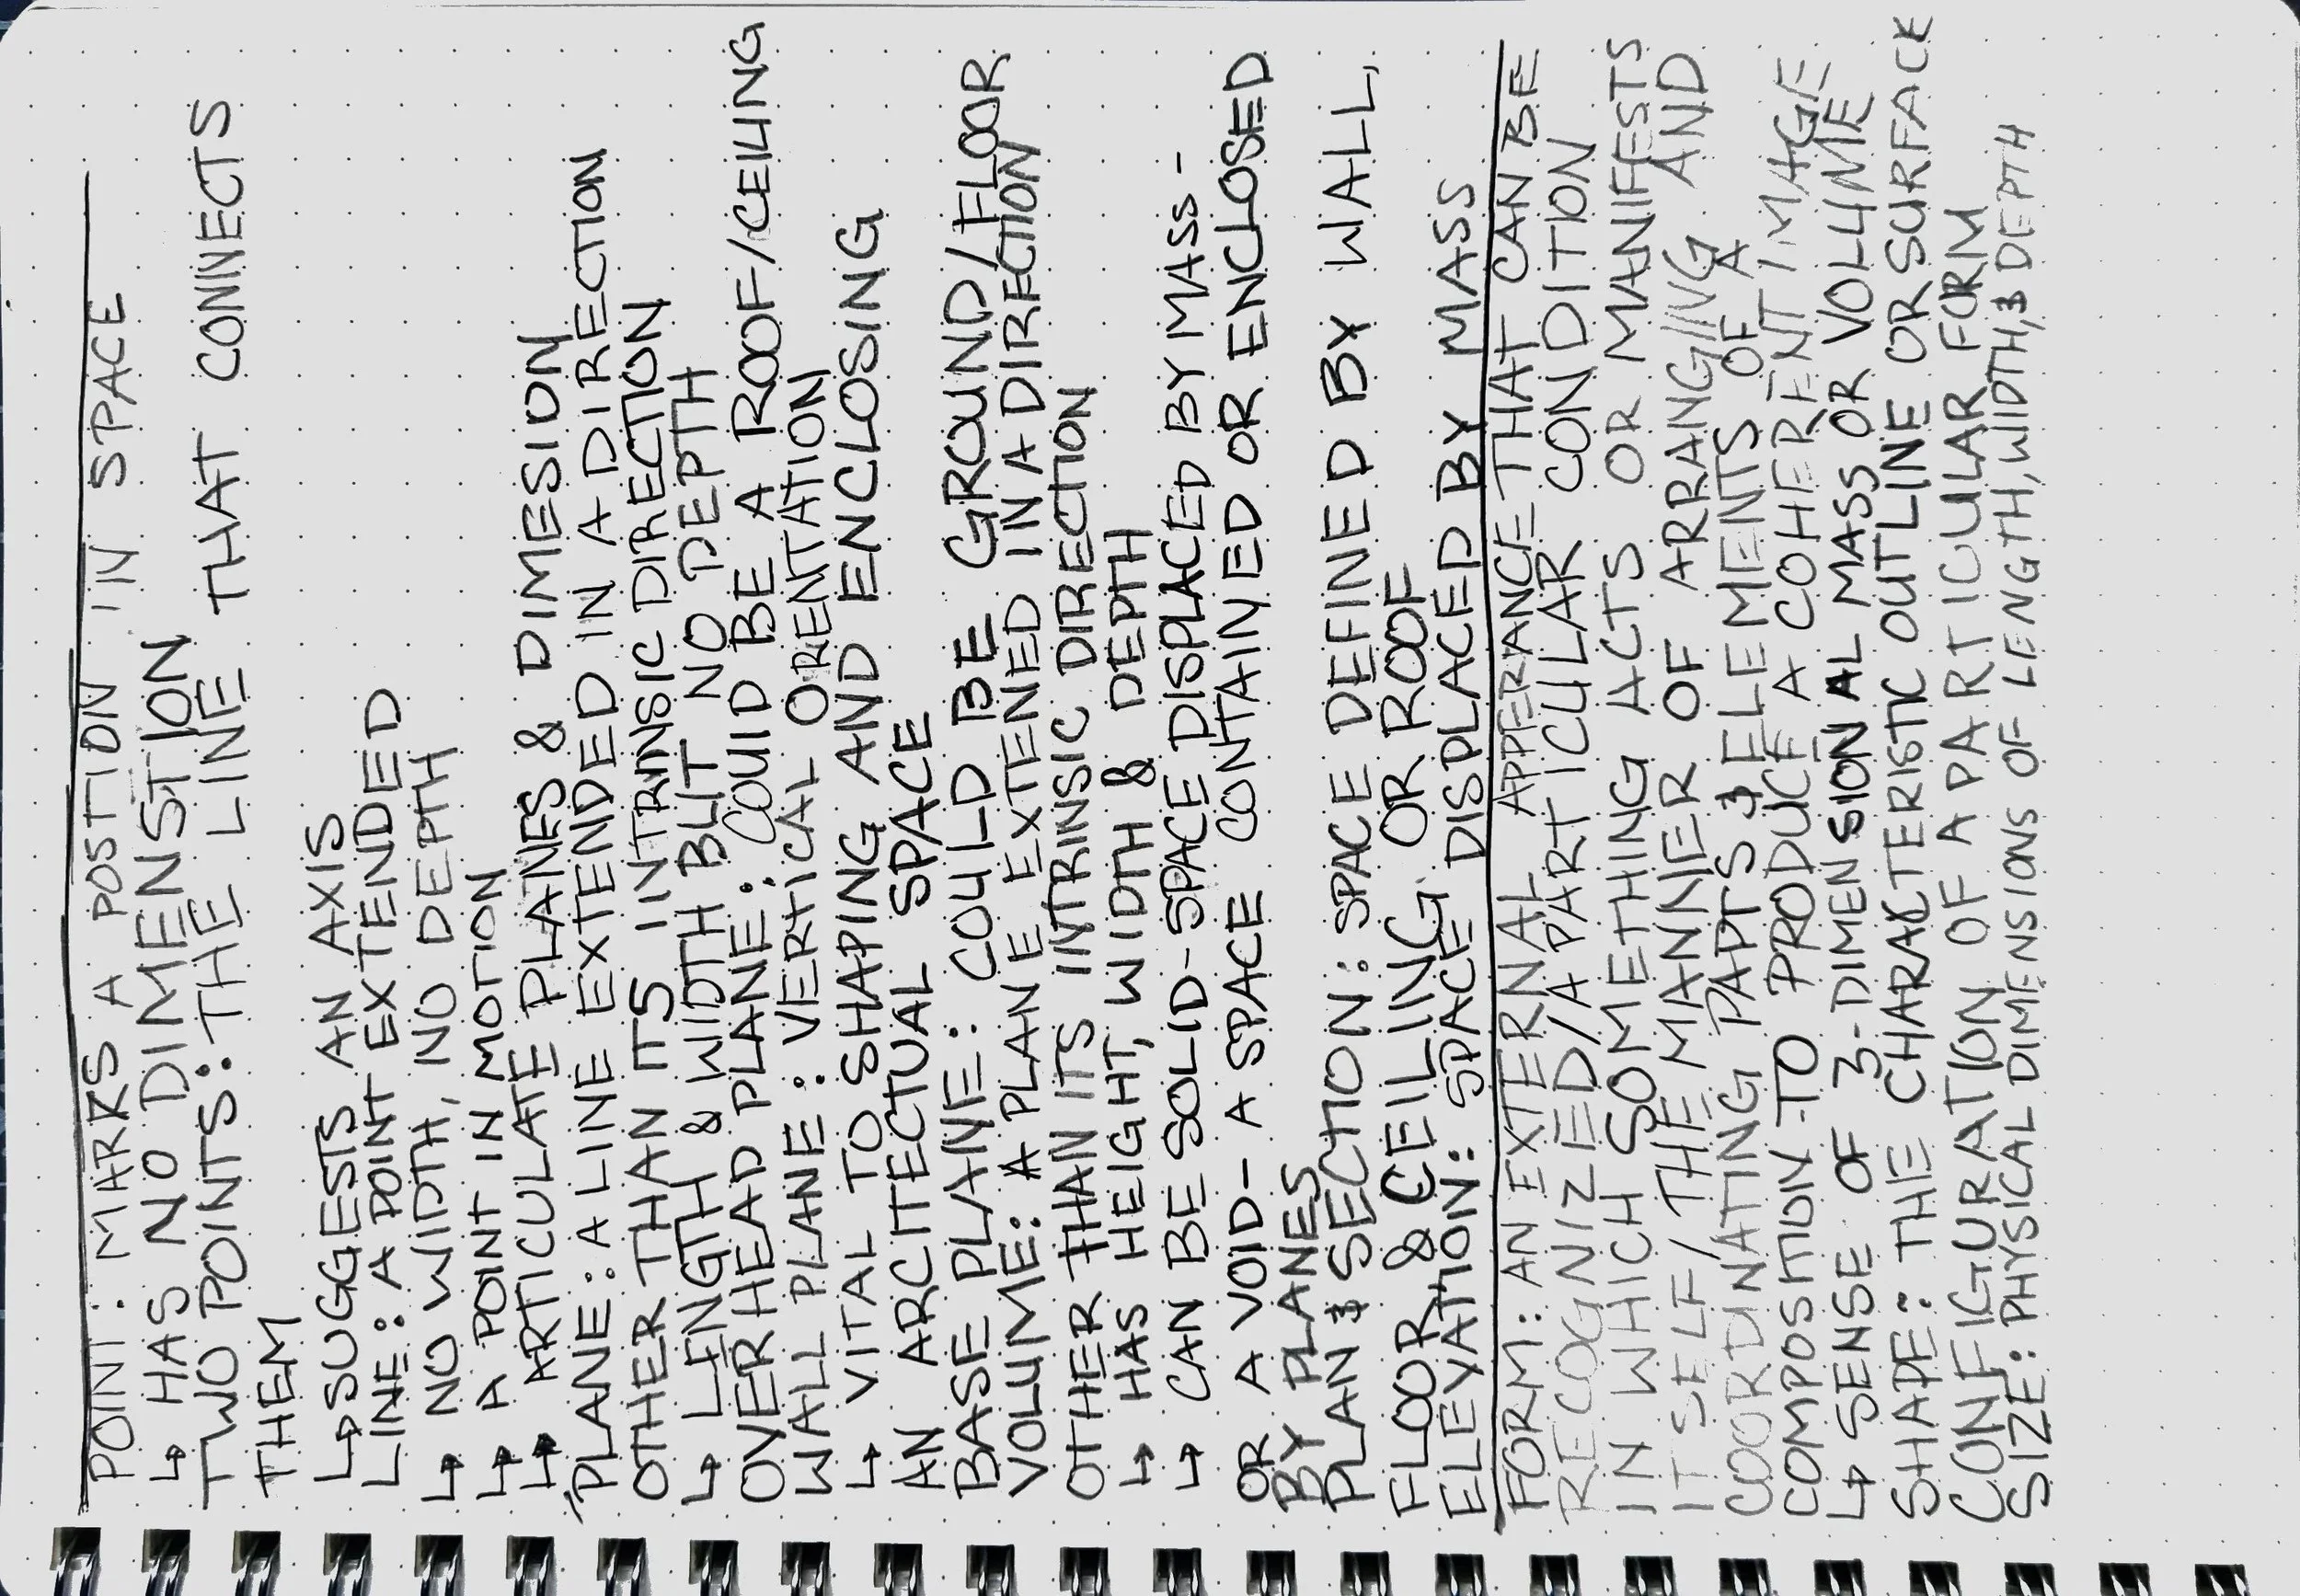 POINT: MARKS A POSTION IN SPACE
↳ HAS NO DIMENSTION
TWO POINTS: THE LINE THAT CONNECTS
THEM
↳ SUGGESTS AN AXIS
LINE: A POINT EXTENDED
↳ NO WIDTH, NO DEPTH
↳ A POINT IN MOTION
↳ ARTICULATE PLANES & DIMESION
PLANE: A LINE EXTENDED IN A DIRECTION
OTHER THAN ITS INTRINSIC DIRECTION
↳ LENGTH & WIDTH BUT NO DEPTH
OVERHEAD PLANE: COULD BE A ROOF/CEILING
WALL PLANE: VERTICAL ORENTATION
↳ VITAL TO SHAPING AND ENCLOSING
AN ARCITECTUAL SPACE
BASE PLANE: COULD BE GROUND/FLOOR
VOLUME: A PLANE EXTENED IN A DIRECTION
OTHER THAN ITS INTRINSIC DIRECTION
↳ HAS HEIGHT, WIDTH & DEPTH
↳ CAN BE SOLID-SPACE DISPLACED BY MASS-
OR A VOID- A SPACE CONTAINED OR ENCLOSED
BY PLANES
PLAN & SECTION: SPACE DEFINED BY WALL,
FLOOR & CEILING OR ROOF
ELEVATION: SPACE DISPLACED BY MASS
FORM: AN EXTERNAL APPERANCE THAT CAN BE
RECOGNIZED/A PARTICULAR CONDITION
IN WHICH SOMETHING ACTS OR MANIFESTS
ITSELF/THE MANNER OF ARRANGING AND
COORDINATING PAPTS & ELEMENTS OF A
COMPOSITION TO PRODUCE A COHERENT IMAGE
↳ SENSE OF 3-DIMENSIONAL MASS OR VOLUME
SHAPE: THE CHARACTERISTIC OUTLINE OR SURFACE
CONFIGURATION OF A PARTICULAR FORM
SIZE: PHYSICAL DIMENSIONS OF LENGTH, WIDTH, & DEPTH